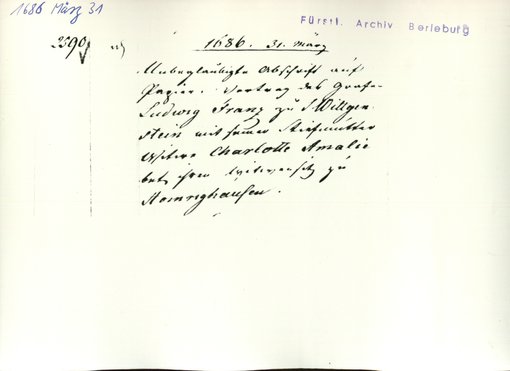 1686 März 31
Fürstl. Archiv Berleburg
2590
1686. 31. März
Unbeglaubigte Abschrift auf
Papier. Vertrag des Grafen
Ludwig Franz zu S. Wittgen
stein mit seiner Stiefmutter
Witwe Charlotte Amalie
betr. ihren Witwensitz zu
Homrighausen.